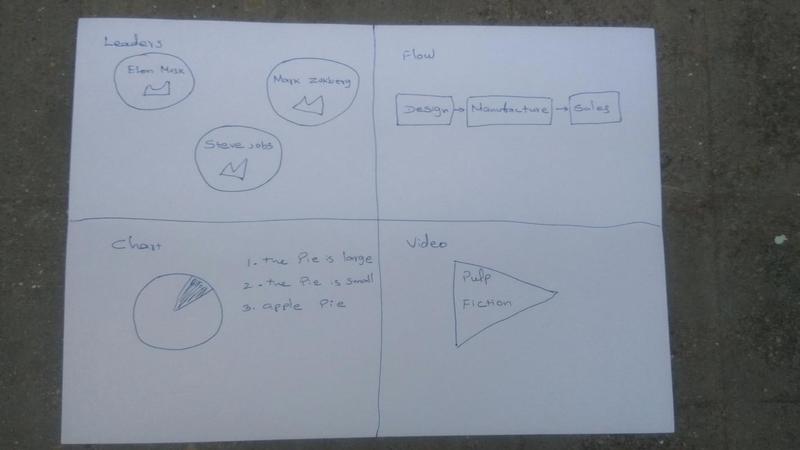 Leaders
Elon Musk
Mark Zukberg
Steve jobs
Flow
Design
Manufacture
Sales
Chart
1. the Pie is large
2. the Pie is small
3. apple Pie
Video
Pulp
Fiction